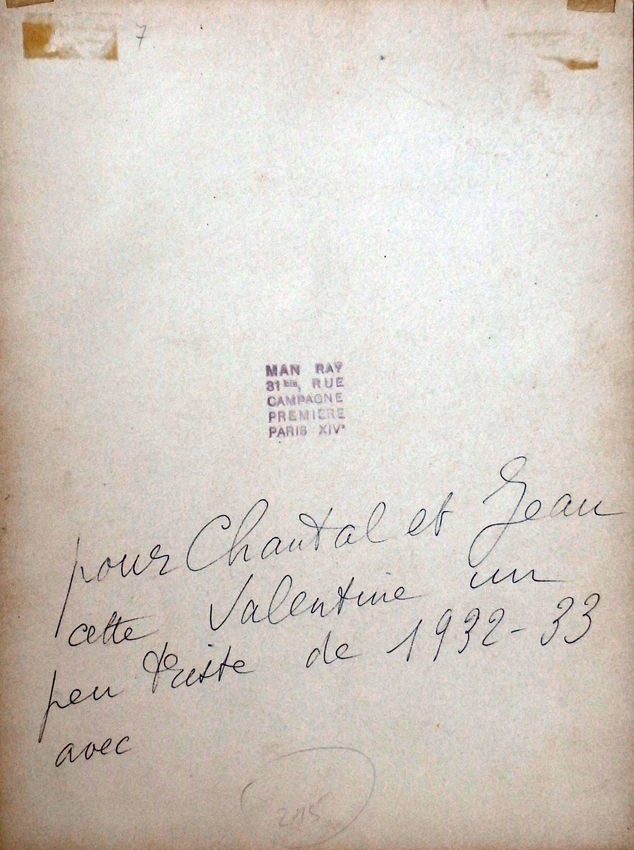 7
MAN RAY
31 bis, RUE
CAMPAGNE
PREMIERE
PARIS XIVe
pour Chantal et Jean
cette Valentine un
peu triste de 1932-33
avec
215